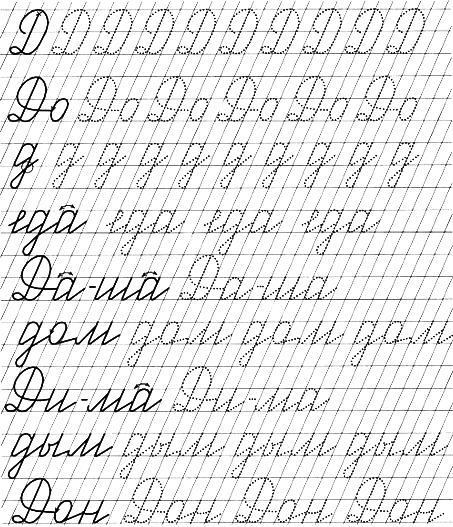 Д Д Д Д Д Д Д Д Д Д
До До До До До До
д д д д д д д д д д
еда еда еда еда
Да-ша Да-ша
дом дом дом дом
Ди-ма Ди-ма
дым дым дым дым
Дон Дон Дон Дон